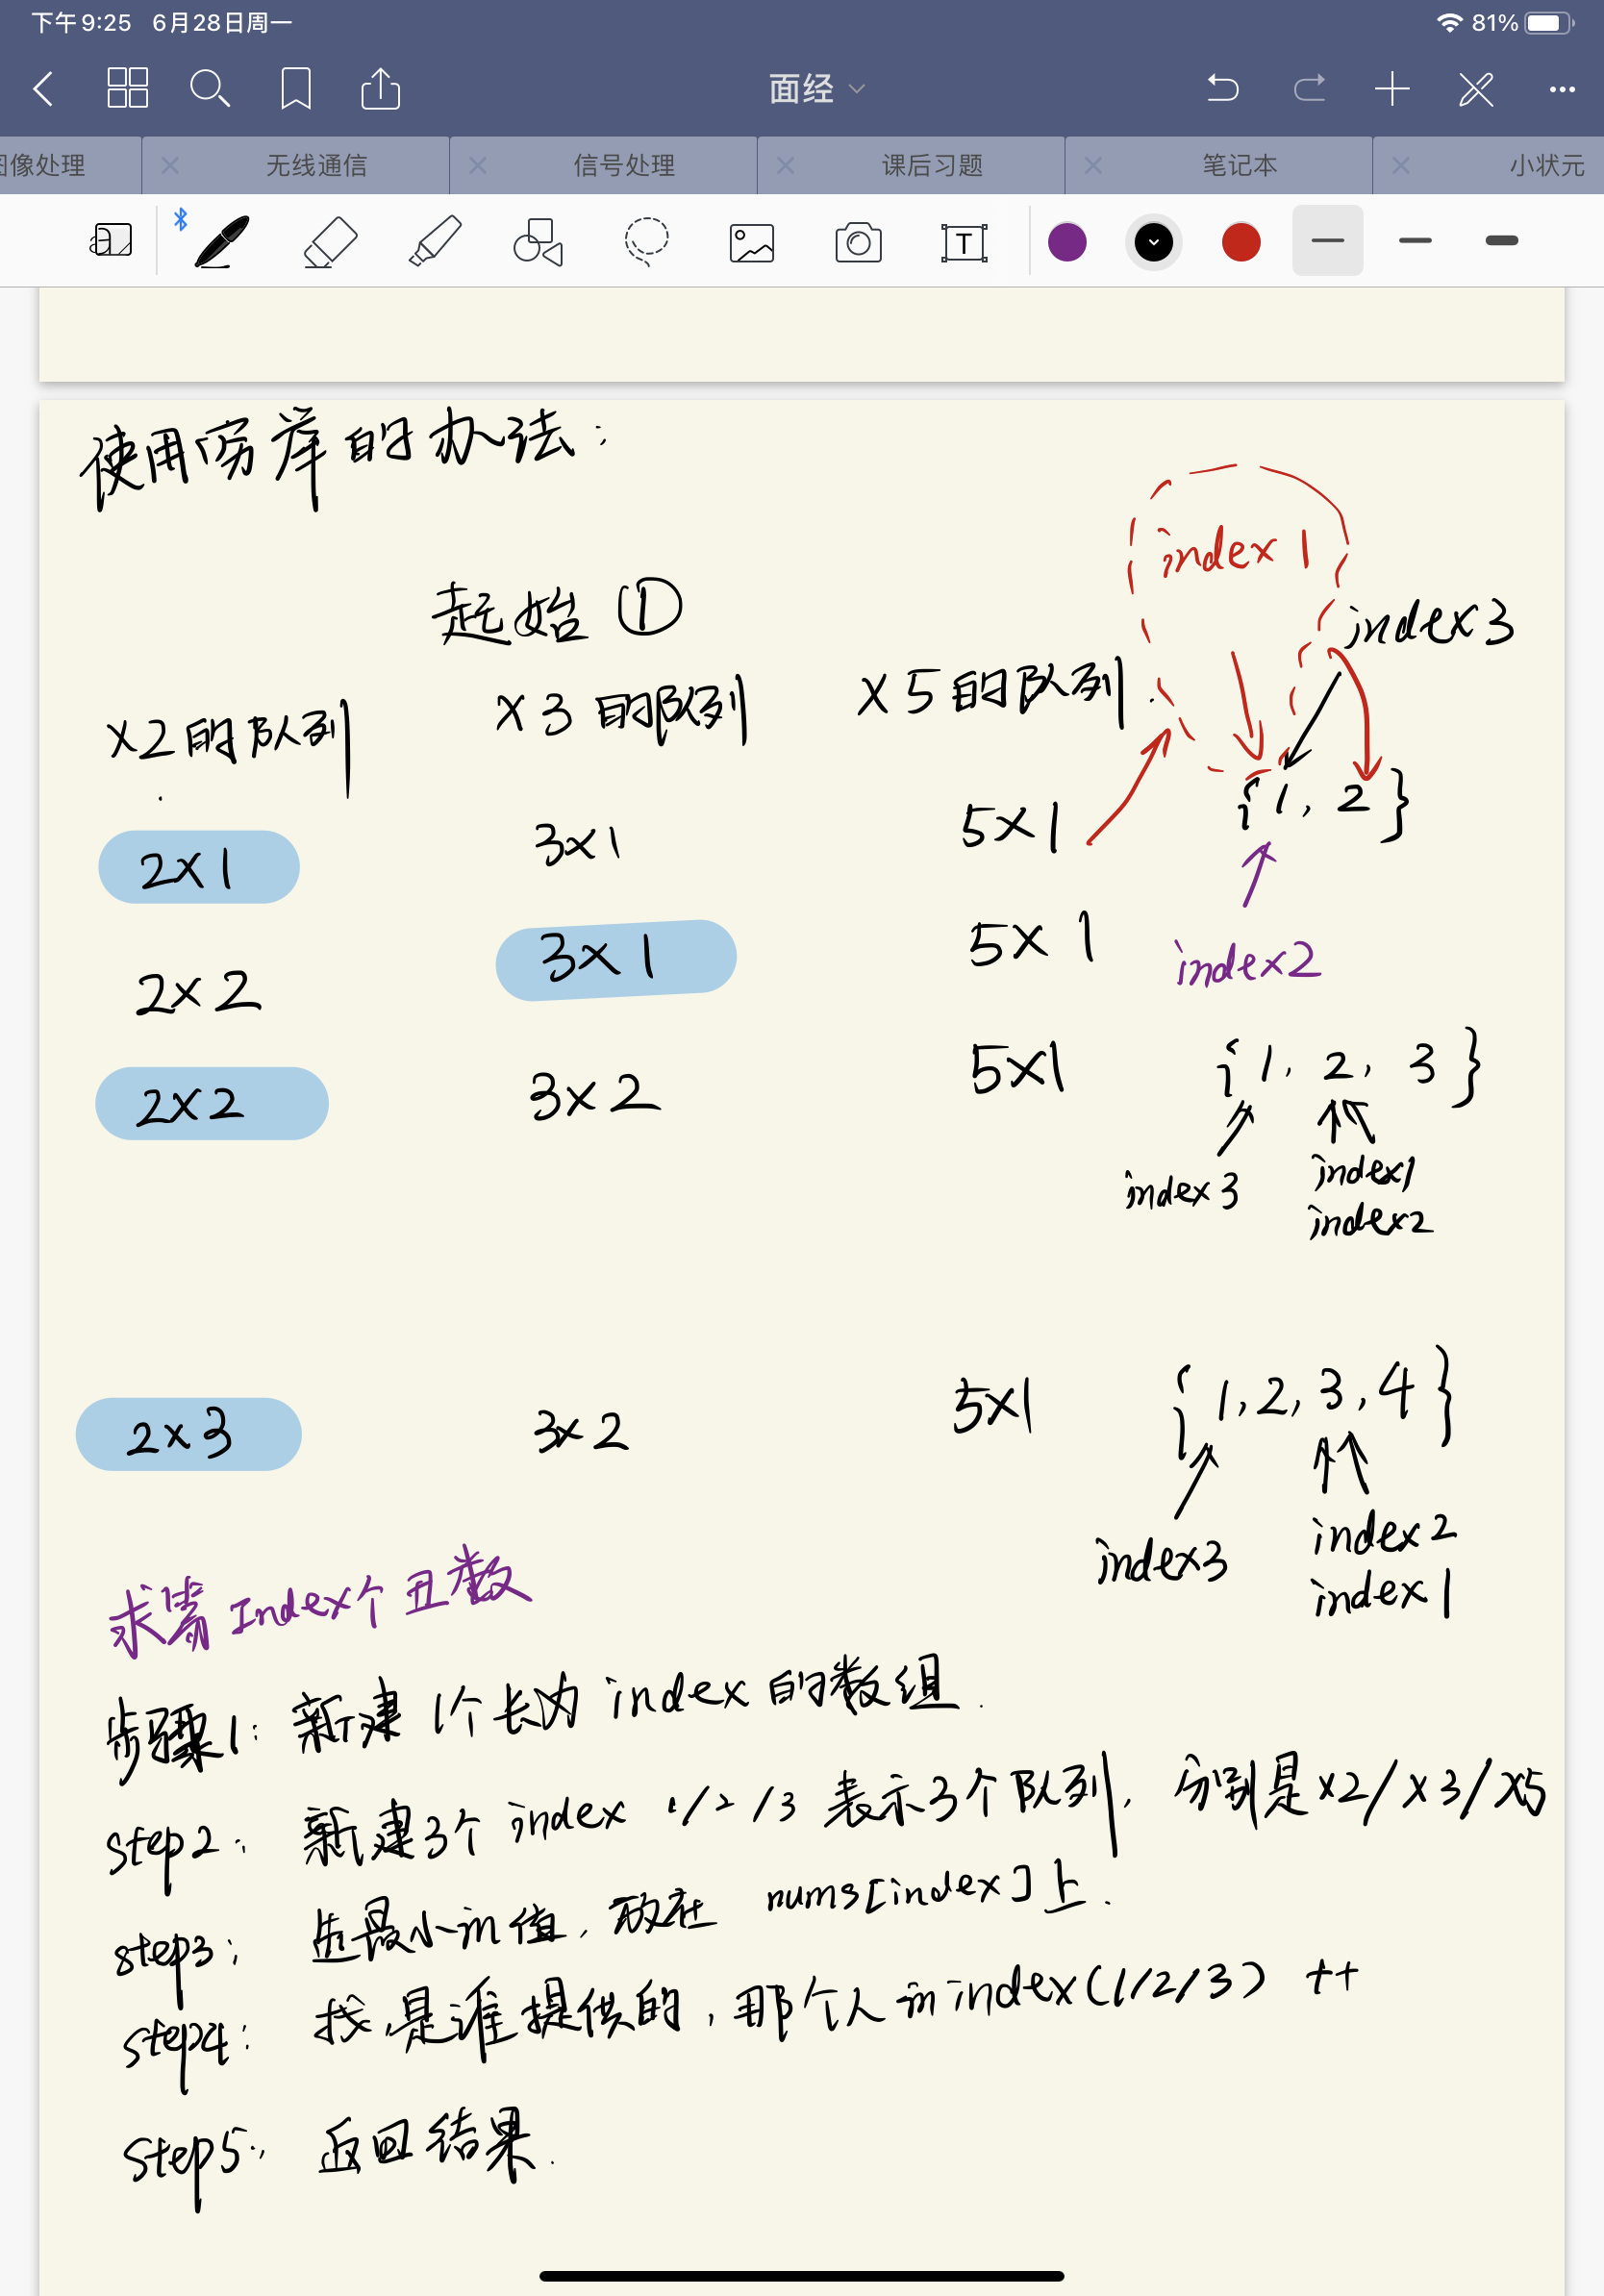 下午9:25 6月28日周一 81%
面经
图像处理 无线通信 信号处理 课后习题 笔记本 小状元
T
使用穷举的办法:
index 1
起始 ①
index 3
x2的队列 x3的队列 x5的队列.
2x1 3x1 5x1 {1, 2}
2x2 3x1 5x1
index2
2x2 3x2 5x1 {1, 2, 3}
index3 index1
index2
2x3 3x2 5x1 {1,2,3,4}
index3 index2
index1
求第Index个丑数
步骤1: 新建1个长为index的数组.
step2: 新建3个index 1/2/3 表示3个队列, 分别是x2/x3/x5
step3: 选最小的值, 放在 nums[index]上.
step4: 找是谁提供的, 那个人的index(1/2/3) ++
Step5: 返回结果.